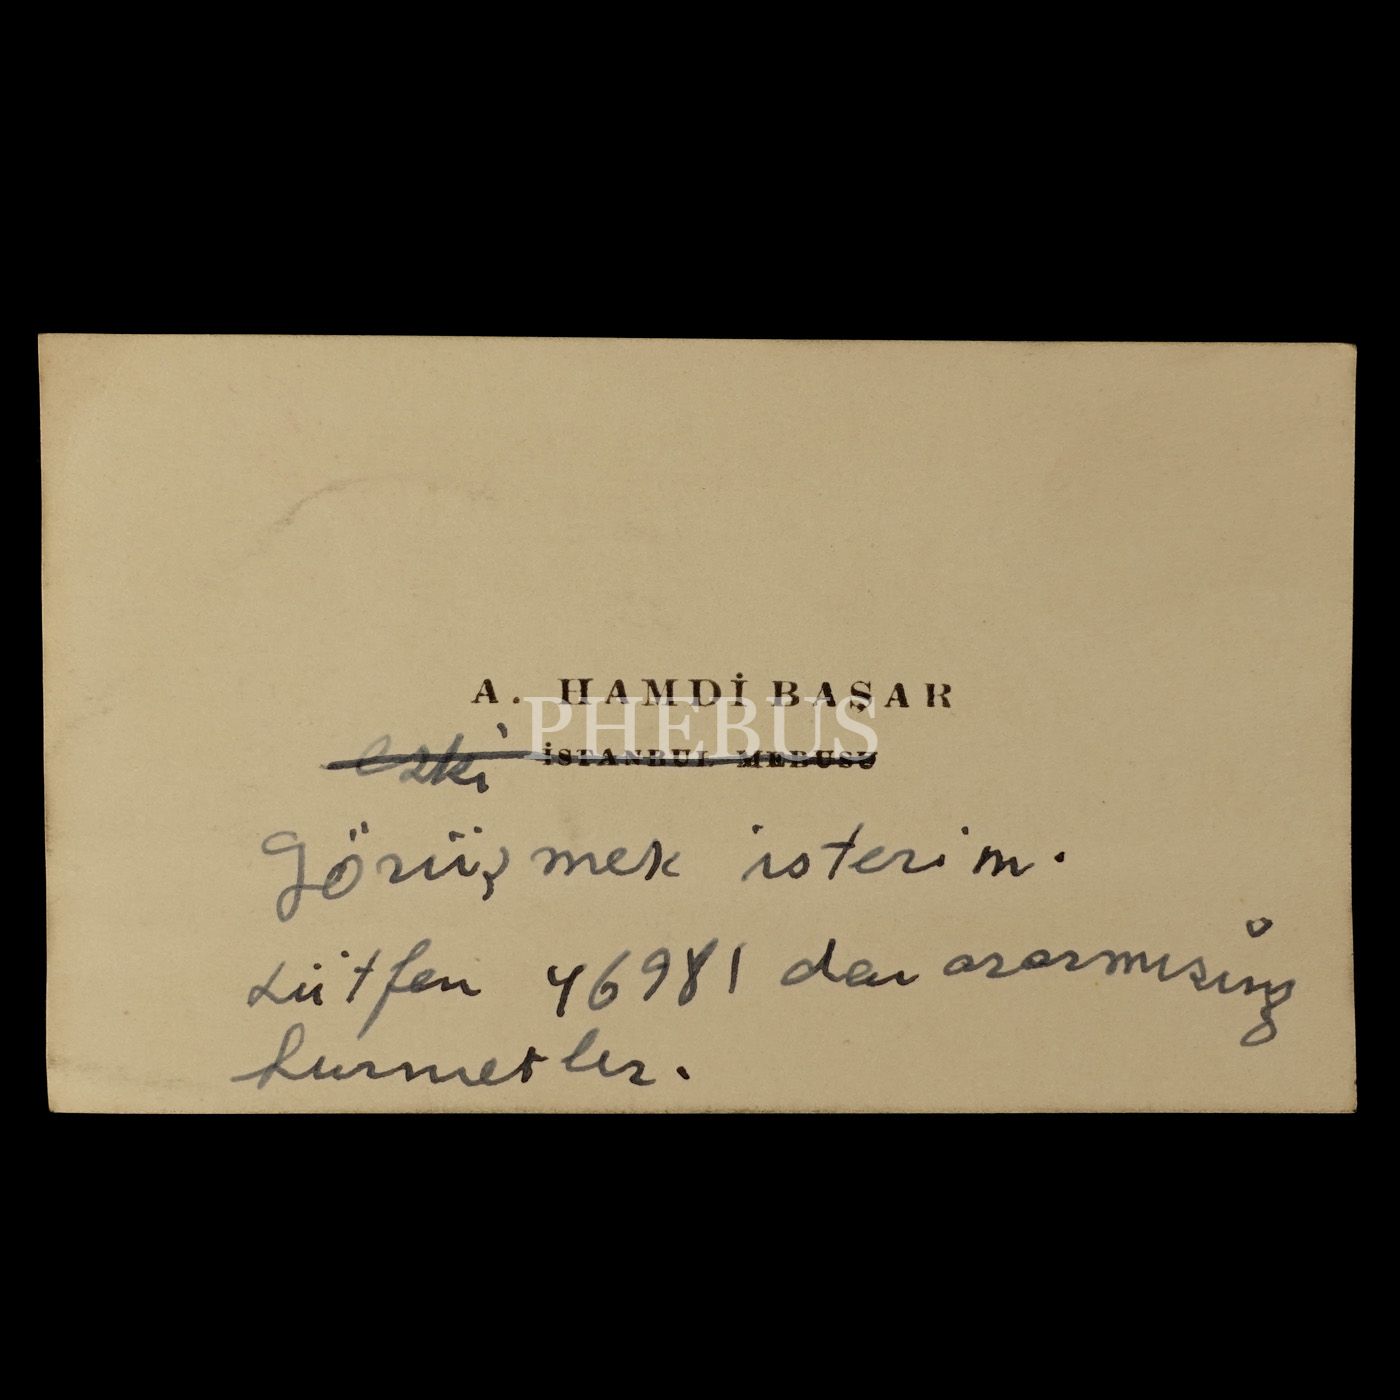 A. HAMDİ BAŞAR
PHEBUS
eski İSTANBUL MEBUSU
Görüşmek isterim.
Lütfen 46981 den ararmısınız
hurmetler.